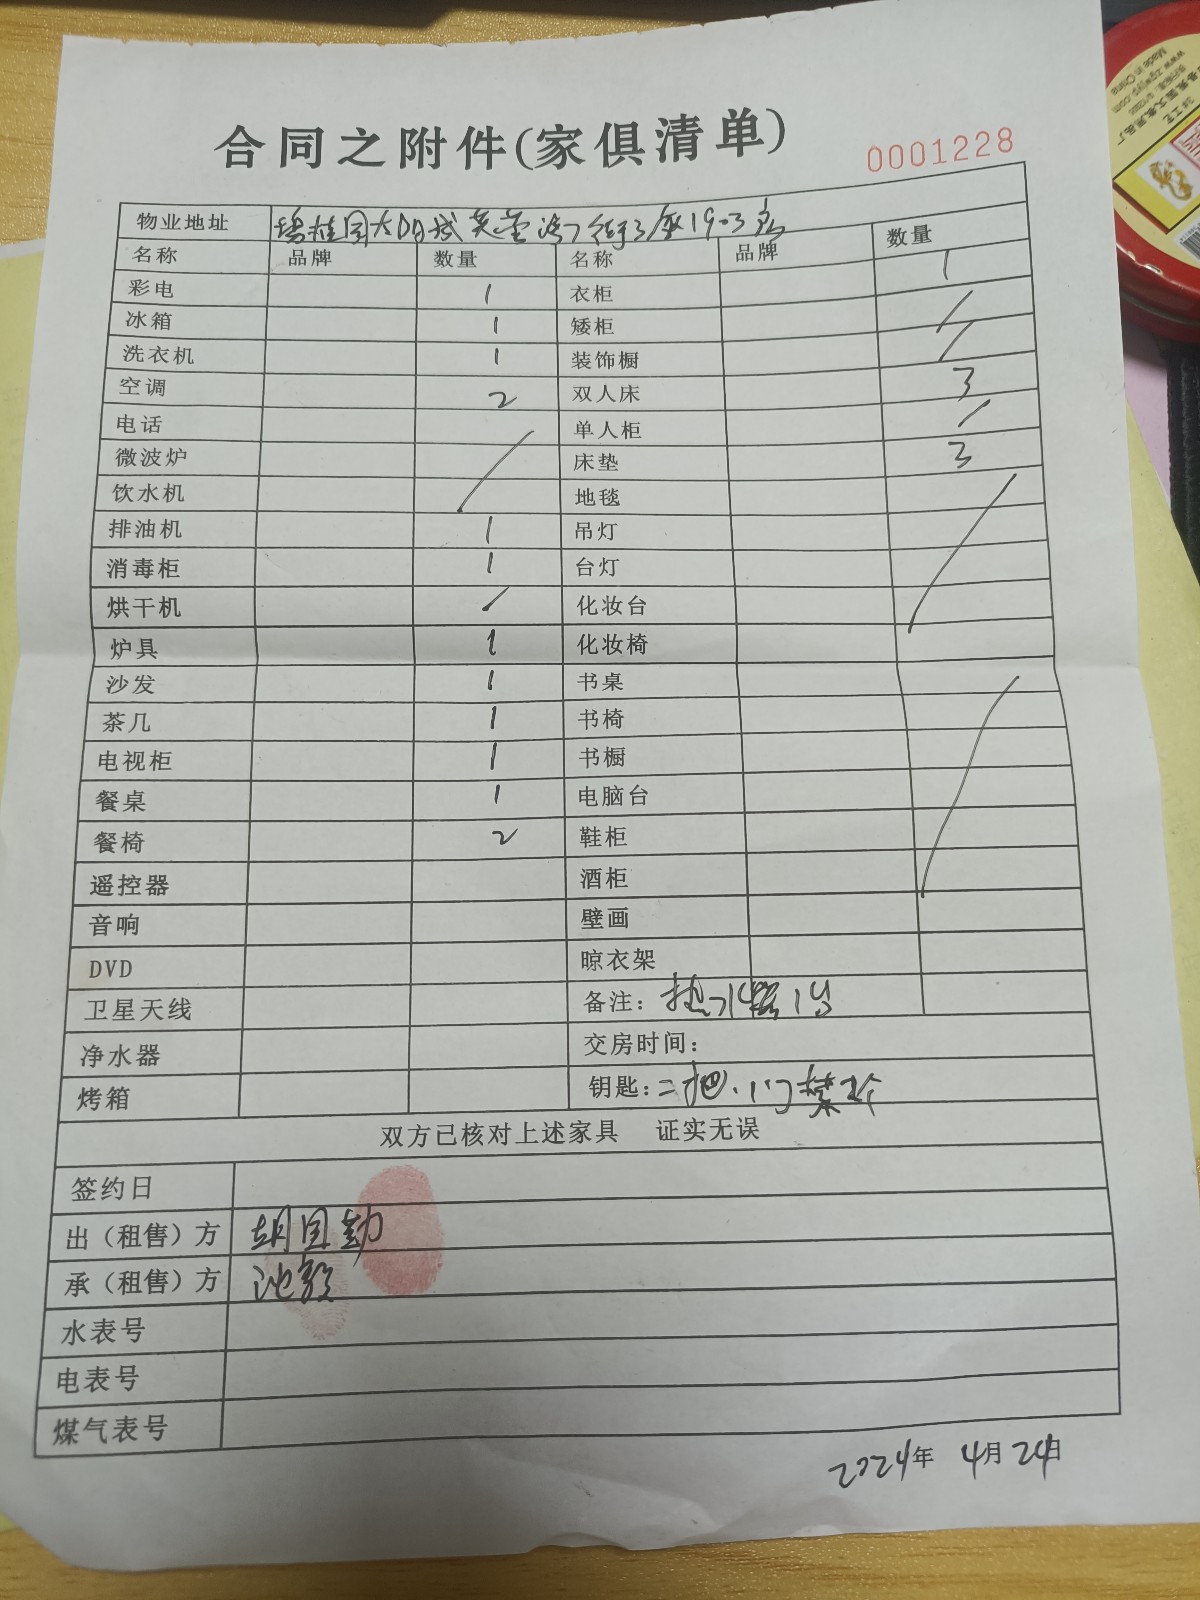 合同之附件(家俱清单)
0001228
物业地址 碧桂园太阳城芙蓉湾7街3座1903房
名称 品牌 数量 名称 品牌 数量
彩电 1 衣柜 1
冰箱 1 矮柜 /
洗衣机 1 装饰橱 /
空调 2 双人床 3
电话 单人柜 /
微波炉 / 床垫 3
饮水机 地毯
排油机 1 吊灯 /
消毒柜 1 台灯
烘干机 / 化妆台
炉具 1 化妆椅
沙发 1 书桌
茶几 1 书椅
电视柜 1 书橱 /
餐桌 1 电脑台
餐椅 2 鞋柜
遥控器 酒柜
音响 壁画
DVD 晾衣架
卫星天线 备注: 热水器1台
净水器 交房时间:
烤箱 钥匙: 二把. 门禁
双方已核对上述家具 证实无误
签约日
出（租售）方 胡国勤
承（租售）方 池
水表号
电表号
煤气表号
2024年 4月24日
Made in China